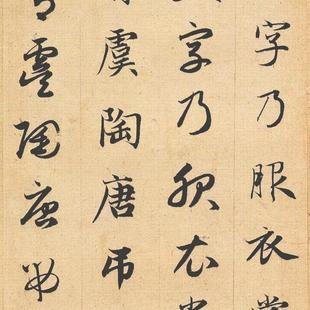 字乃服衣裳
字乃服衣裳
有虞陶唐弔
有虞陶唐弔